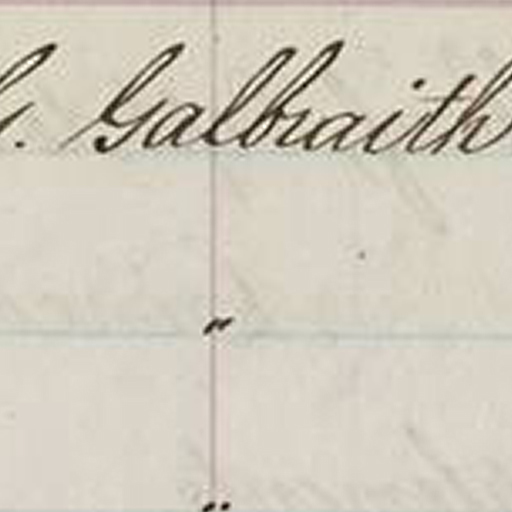 G. Galbraith
"
"